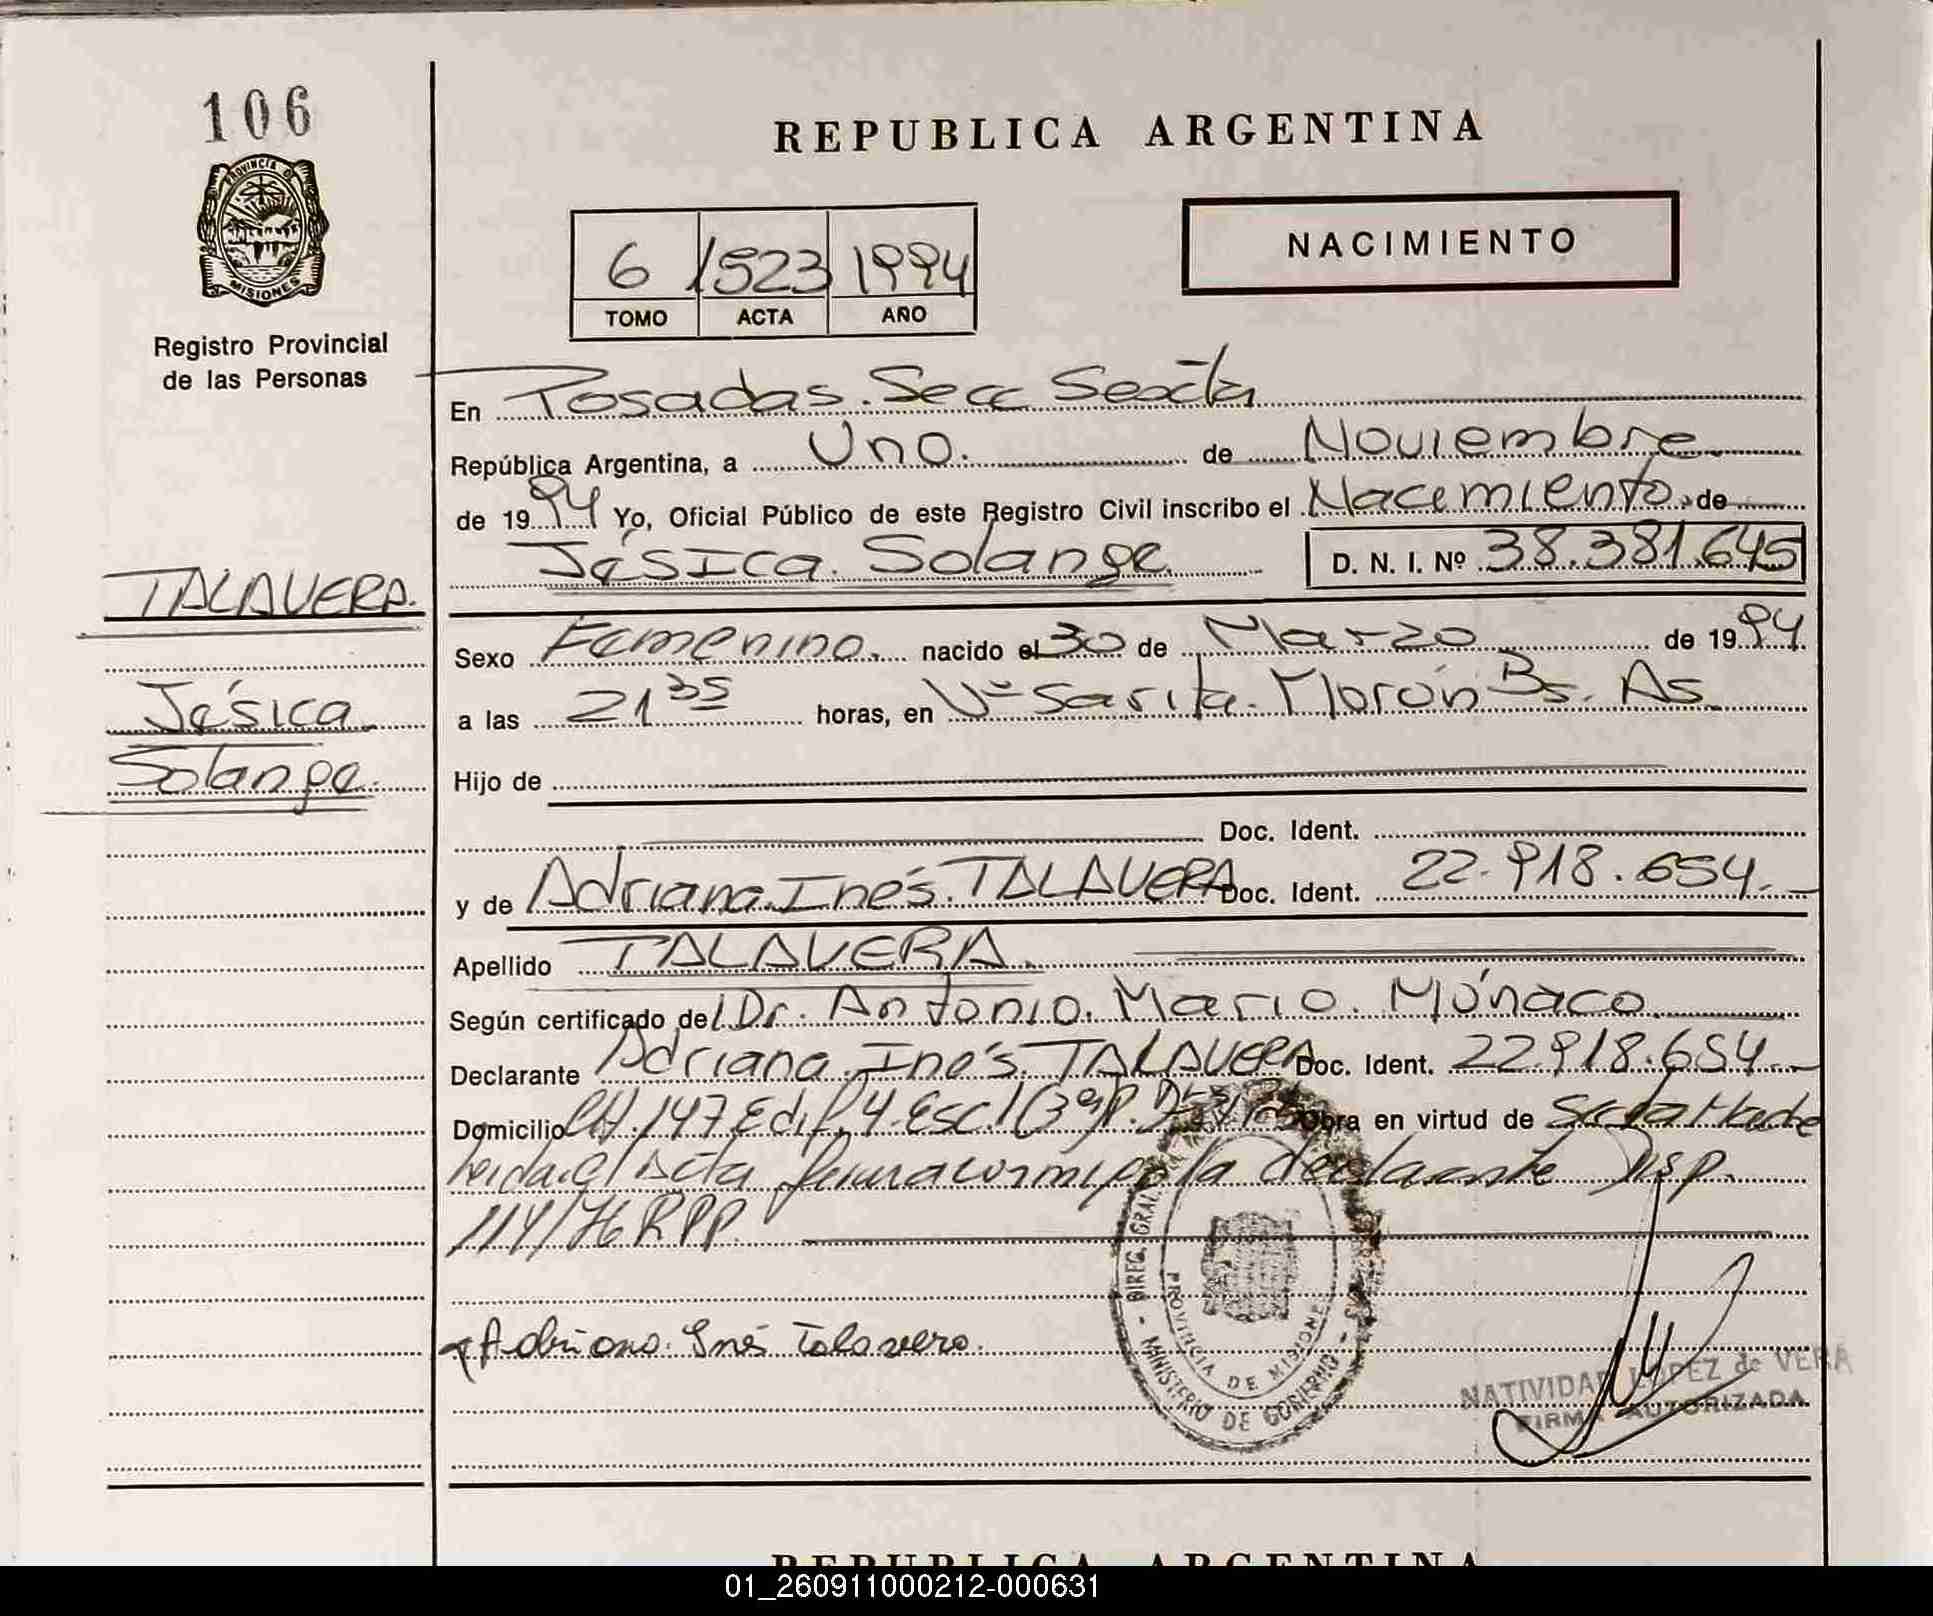 106
REPUBLICA ARGENTINA
PROVINCIA DE
MISIONES
Registro Provincial
de las Personas
NACIMIENTO
6 1523 1994
TOMO ACTA AÑO
En Posadas. Secc Sexta
República Argentina, a Uno. de Noviembre
de 1994 Yo, Oficial Público de este Registro Civil inscribo el Nacimiento de
Jésica Solange D. N. I. Nº 38.381.645
TALAVERA.
Jésica
Solange.
Sexo Femenino. nacido el 30 de Marzo de 1994.
a las 21 35 horas, en Vª Sarita. Morón Bs. As.
Hijo de
Doc. Ident.
y de Adriana Inés. TALAVERA Doc. Ident. 22.918.654.
Apellido TALAVERA.
Según certificado del Dr. Antonio. Mario. Mónaco.
Declarante Adriana Inés. TALAVERA Doc. Ident. 22.918.654.
Domicilio CH.147 Edif.4.Esc.1(3º)P. Obra en virtud de
Leida el Acta firma conmigo la declarante Disp.
114/76 RPP.
Adriana Inés Talavera.
DIREC. GRAL.
PROVINCIA DE MISIONES
MINISTERIO DE GOBIERNO
NATIVIDAD LOPEZ de VERA
FIRMA AUTORIZADA
REPUBLICA ARGENTINA
01_260911000212-000631